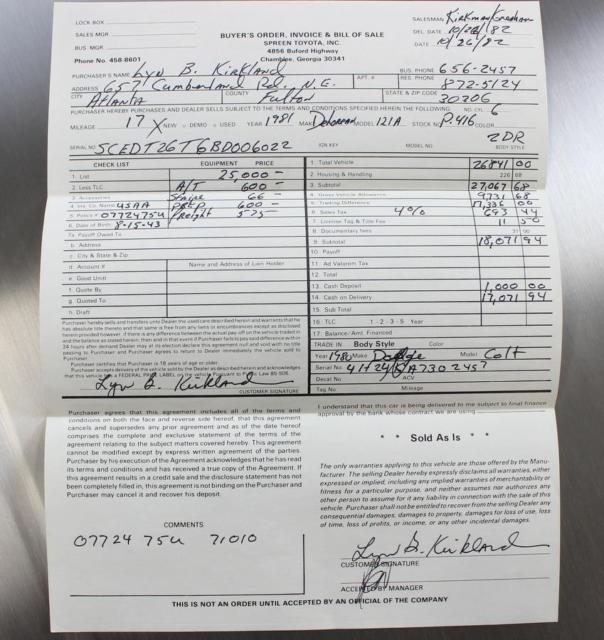 LOCK BOX
SALESMAN Kirkman/Graham
SALES MGR.
BUYER'S ORDER, INVOICE & BILL OF SALE
DEL. DATE 10/26/82
SPREEN TOYOTA, INC.
DATE 10/26/82
BUS. MGR.
4856 Buford Highway
Phone No. 458-8601
Chamblee, Georgia 30341
BUS. PHONE 656-2457
PURCHASER'S NAME Lyn B. Kirkland
APT. #
RES. PHONE 872-5124
ADDRESS 657 Cumberland Rd. N.E.
CITY Atlanta COUNTY Fulton STATE & ZIP CODE 30306
PURCHASER HEREBY PURCHASES AND DEALER SELLS SUBJECT TO THE TERMS AND CONDITIONS SPECIFIED HEREIN THE FOLLOWING NO. CYL. 6
MILEAGE 17 X NEW DEMO USED YEAR 1981 MAKE Delorean MODEL 121A STOCK NO. P.416 COLOR
SERIAL NO. SCEDT26T6BD006022 IGN KEY MODEL NO. 2DR BODY STYLE
CHECK LIST EQUIPMENT PRICE
1. List 25,000 -
2. Less TLC A/T 600 -
3. Accessories Stripe 66 -
4. Ins. Co. Name USAA D&EP 600 -
5. Policy # 07724754 Freight 525
6. Date of Birth 8-15-43
7a. Payoff Owed To
b. Address
c. City & State & Zip
d. Account # Name and Address of Lien Holder
e. Good Until
f. Quote By
g. Quoted To
h. Draft
1. Total Vehicle 26841 00
2. Housing & Handling 226 68
3. Subtotal 27,067 68
4. Gross Vehicle Allowance 9731 68
5. Trading Difference 17,336 00
6. Sales Tax 4% 693 44
7. License Tag & Title Fee 11 50
8. Documentary fees 31 00
9. Subtotal 18,071 94
10. Payoff
11. Ad Valorem Tax
12. Total
13. Cash Deposit 1,000 00
14. Cash on Delivery 17,071 94
15. Sub Total
16. TLC 1 - 2 - 3 - 5 Year
17. Balance/Amt. Financed
TRADE IN Body Style Color
Year 1980 Make Dodge Model Colt
Serial No. 4H24 A730 2457
Decal No. ACV
Tag No. Mileage
Purchaser hereby sells and transfers unto Dealer the used care described herein and warrants that he
has absolute title thereto and that same is free from any liens or encumbrances except as disclosed
Purchaser certifies that Purchaser is 18 years of age or older.
Lyn B. Kirkland
CUSTOMER SIGNATURE
Purchaser agrees that this agreement includes all of the terms and
conditions on both the face and reverse side hereof, that this agreement
cancels and supersedes any prior agreement and as of the date hereof
comprises the complete and exclusive statement of the terms of the
agreement relating to the subject matters covered hereby. This agreement
cannot be modified except by express written agreement of the parties.
Purchaser by his execution of the Agreement acknowledges that he has read
its terms and conditions and has received a true copy of the Agreement. If
this agreement results in a credit sale and the disclosure statement has not
been completely filled in, this agreement is not binding on the Purchaser and
Purchaser may cancel it and recover his deposit.
I understand that this car is being delivered to me subject to final finance
approval by the bank whose contract we are using
* * Sold As Is * *
The only warranties applying to this vehicle are those offered by the Manu-
facturer. The selling Dealer hereby expressly disclaims all warranties, either
expressed or implied, including any implied warranties of merchantability or
fitness for a particular purpose, and neither assumes nor authorizes any
other person to assume for it any liability in connection with the sale of this
vehicle. Purchaser shall not be entitled to recover from the selling Dealer any
consequential damages, damages to property, damages for loss of use, loss
of time, loss of profits, or income, or any other incidental damages.
COMMENTS
07724 75U 71010
Lyn B. Kirkland
CUSTOMER SIGNATURE
ACCEPTED BY MANAGER
THIS IS NOT AN ORDER UNTIL ACCEPTED BY AN OFFICIAL OF THE COMPANY